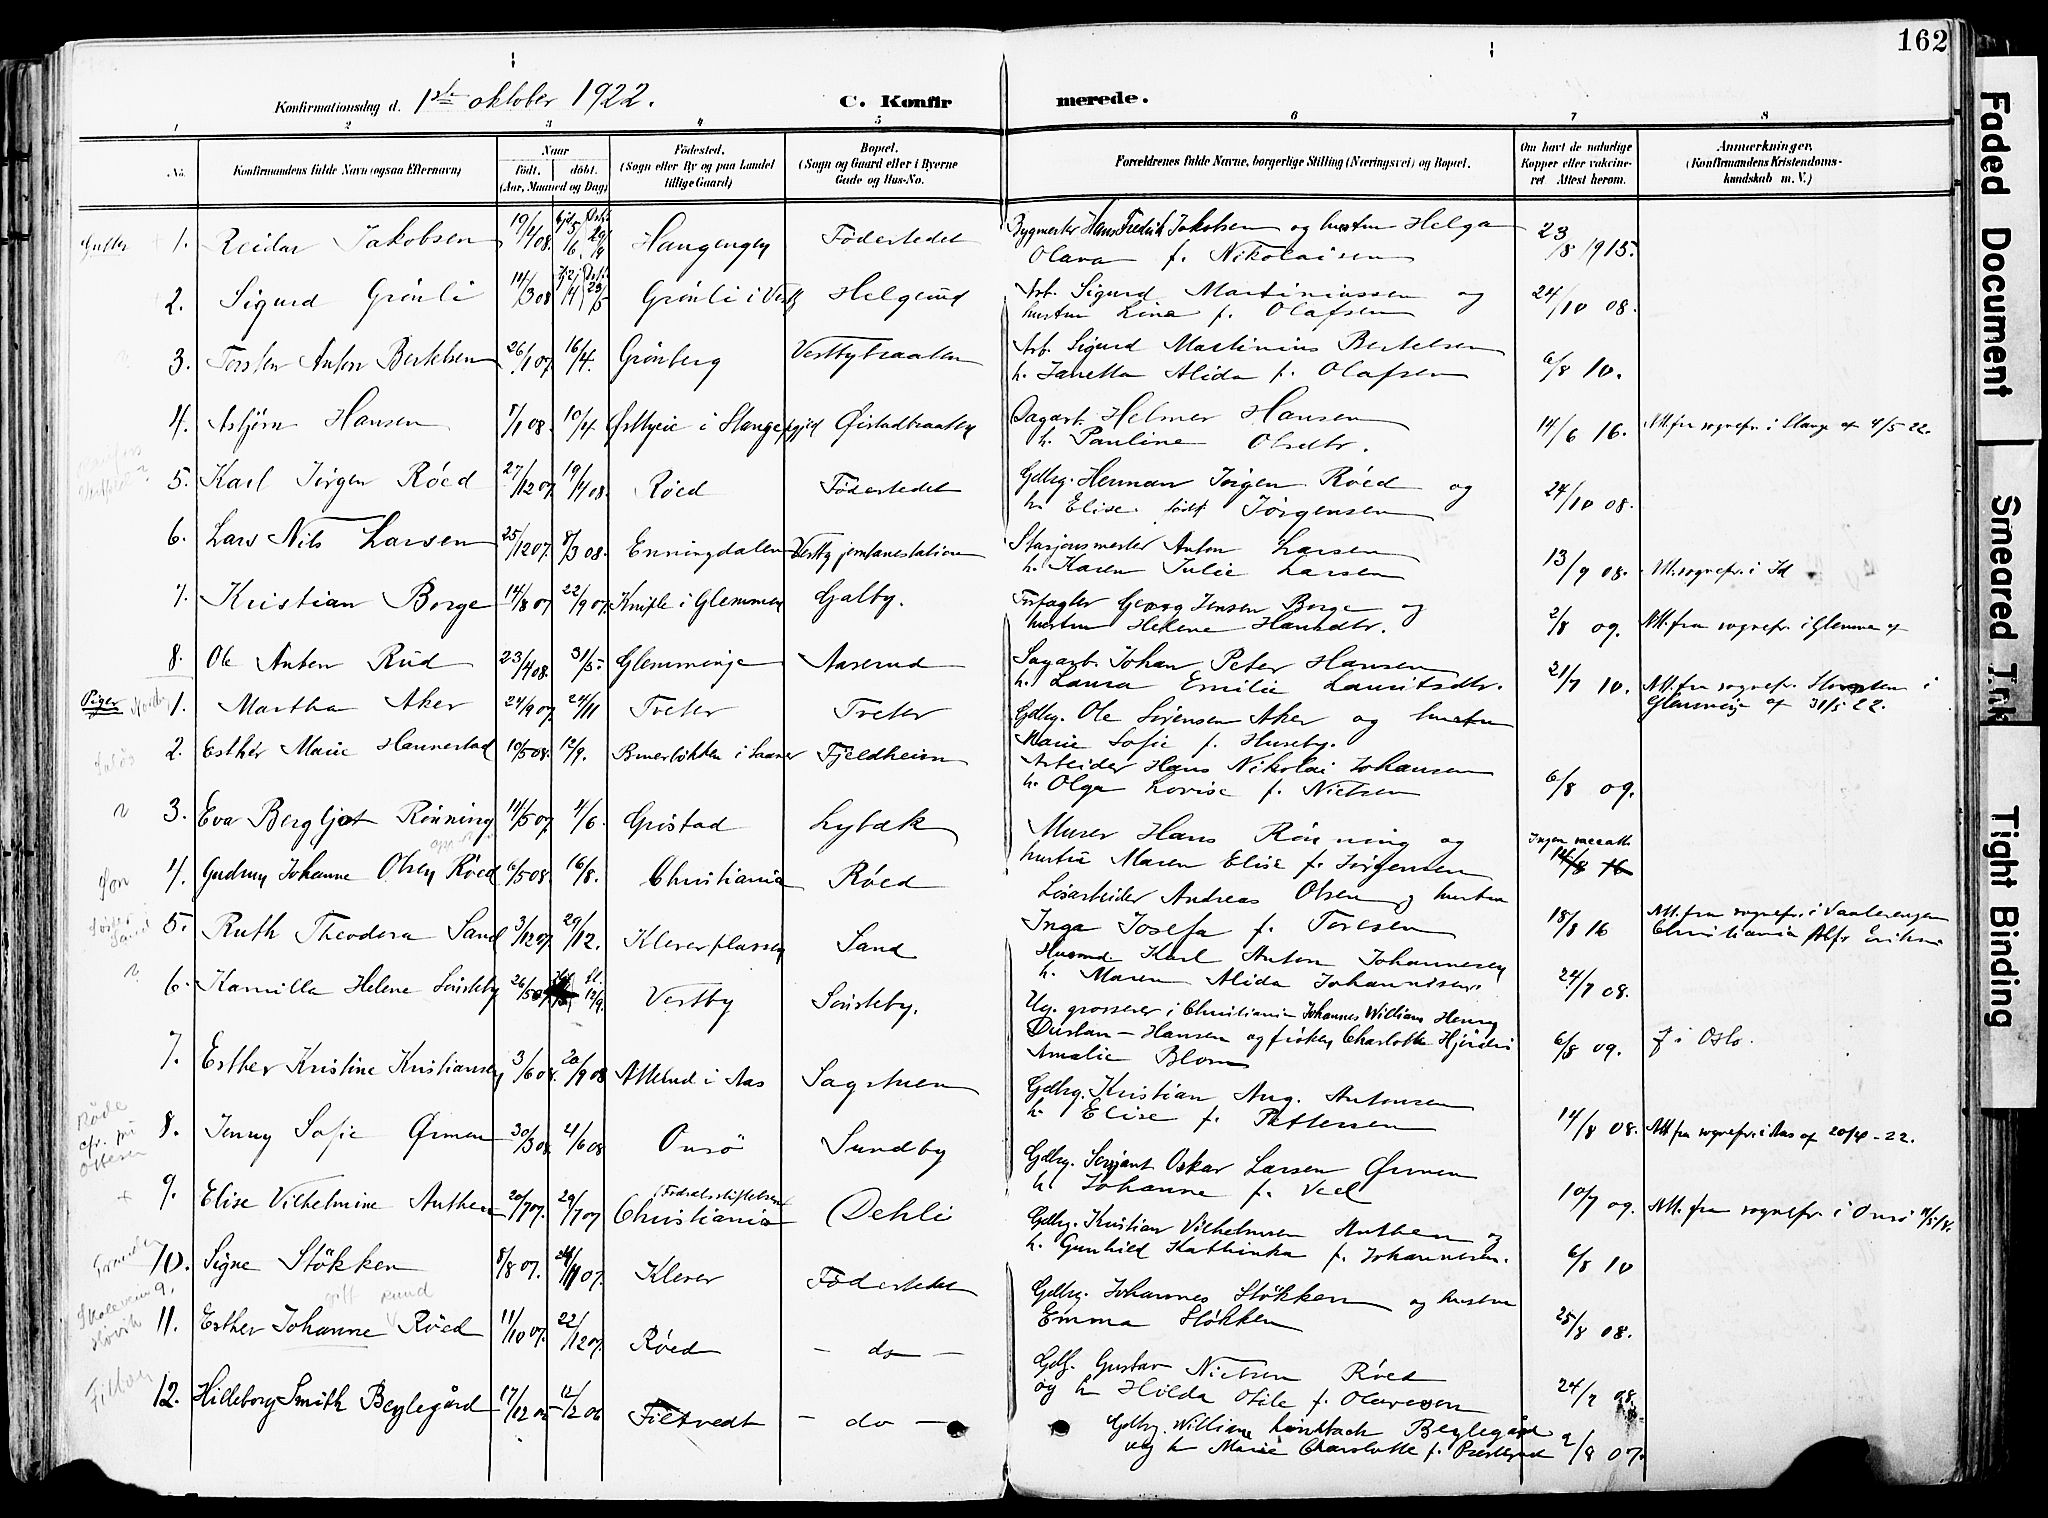 162
Konfirmationsdag d. 1ste oktober 1922.
C. Konfirmerede.
1 2 3 4 5 6 7 8
No.
Konfirmandens fulde Navn (ogsaa Efternavn)
Naar
Født. døbt.
(Aar, Maaned og Dag)
Fødested,
(Sogn eller By og paa Landet
tillige Gaard)
Bopæl.
(Sogn og Gaard eller i Byerne
Gade og Hus-No.
Forældrenes fulde Navne, borgerlige Stilling (Næringsvei) og Bopæl.
Om havt de naturlige
Kopper eller vakcine-
ret Attest herom.
Anmærkninger,
(Konfirmandens Kristendoms-
kundskab m. V.)
Gutter 1. Reidar Jakobsen 19/4 08. Haugengen Fødestedet Bygmester Hans Fredrik Jakobsen og hustru Helga
Olava f. Nikolaisen 23/8 1915.
2. Sigurd Grönli 14/3 08 Grönli i Vestby Helgerud Arb. Sigurd Martiniussen og
hustru Lina f. Olafsen 24/10 08.
3. Torsten Anton Bertelsen 26/1 07. 16/4. Grönberg Vestbybraaten Arb. Sigurd Martinius Bertelsen
h. Janetta Alida f. Olafsen 6/8 10.
4. Asbjørn Hansen 7/1 08. 10/4 Østbyeie i Stange pgjeld Øistadbraaten Dagarb. Helmer Hansen
h. Pauline Olsdtr. 14/6 16. Att. fra sognepr. i Stange af 4/5 22.
5. Karl Jörgen Röed 27/12 07. 19/4 08. Röed Fødestedet Gdbr. Herman Jörgen Röed og
h. Elise født Jörgensen 24/10 08.
6. Lars Nils Larsen 25/12 07. 8/3 08. Enningdalen Vestby jernbanestation Stasjonsmester Anton Larsen
h. Karen Julie Larsen 13/9 08. Att. sognepr. i Id
7. Kristian Borge 14/8 07 22/9 07. Kniple i Glemmen Galby. Forpagter Georg Jensen Borge og
hustru Helene Hansdtr. 2/8 09. Att. fra sognepr. i Glemmen af
8. Ole Anton Rud 23/4 08. 31/5 Glemminge Aaserud Sagarb. Johan Peter Hansen
h. Laura Emilie Lauritsdtr. 21/7 10. Att. fra sognepr. i
Glemminge af 31/5 22.
Piger 1. Martha Aker 24/9 07. 24/11 Treter Treter Gdbr. Ole Sörensen Aker og hustru
Marie Sofie f. Huseby.
2. Esther Marie Hannestad 10/5 08. 12/9. i Saaner Fjeldheim Arbeider Hans Nikolai Johansen
h. Olga Lovise f. Nielsen 6/8 09.
3. Eva Bergljot Rönning 14/5 07. 7/6. Gristad Lybæk Murer Hans Rönning og
hustru Maren Elise f. Jörgensen Ingen vacatt.
4. Gudrun Johanne Olsen Röed 6/5 08. 16/8. Christiania Röed Løsarbeider Andreas Olsen og hustru
Inga Josefa f. Toresen 18/8 16 Att. fra sognepr. i Vaalerengen
Christiania Alfr. Eriksen
Son
5. Ruth Theodora Sand 3/12 07. 29/12. Kleverplassen Sand Husmd. Karl Anton Johannesen
h. Maren Alida Johannesen. 24/7 08.
6. Kamilla Helene Sörsteby 26/5 07 Vestby Sörsteby. Ug. grosserer i Christiania Johannes William Henry
Durban - Hansen og frøken Charlotte Hjördis
Amalie Blom 6/8 09. f i Oslo.
7. Esther Kristine Kristiansen 3/6 08. 20/9 08 Altelud i Aas Sagstuen Gdbr. Kristian Aug. Antonsen
h. Elise f. Pettersen 14/8 08. Att fra sognepr. i Aas af 20/4 - 22.
8. Jenny Sofie Ørmen 30/3 08. 4/6 08 Onsö Sundby Gdbr. Serjant Oskar Larsen Ørmen
h. Johanne f. Veel 10/7 09. Att. fra sognepr. i Onsö 11/5/18.
9. Elise Vilhelmine Anthen 20/7 07. 29/7 07 (Fødselsstiftelsen) Christiania Dehli Gdbr. Kristian Vilhelmsen Anthen og
h. Gunhild Kathinka f. Johannesen. 6/8 10
10. Signe Stökken 8/8 07. 24/11 07. Klever Fødestedet Gdbr. Johannes Stökken og hustru
Emma Stökken 25/8 08.
11. Esther Johanne Röed 11/10 07. 22/12 07. Röed - do - Gdb. Gustav Nielsen Röed
og h Hilda Otile f. Olavesen 24/7 08.
12. Hilleborg Smith Beylegård 17/12 05 12/2 06 Filtvedt - do - Gdbr. William Beylegård
og h Marie Charlotte f. 2/8 07.
Faded Document
Smeared Ink
Tight Binding